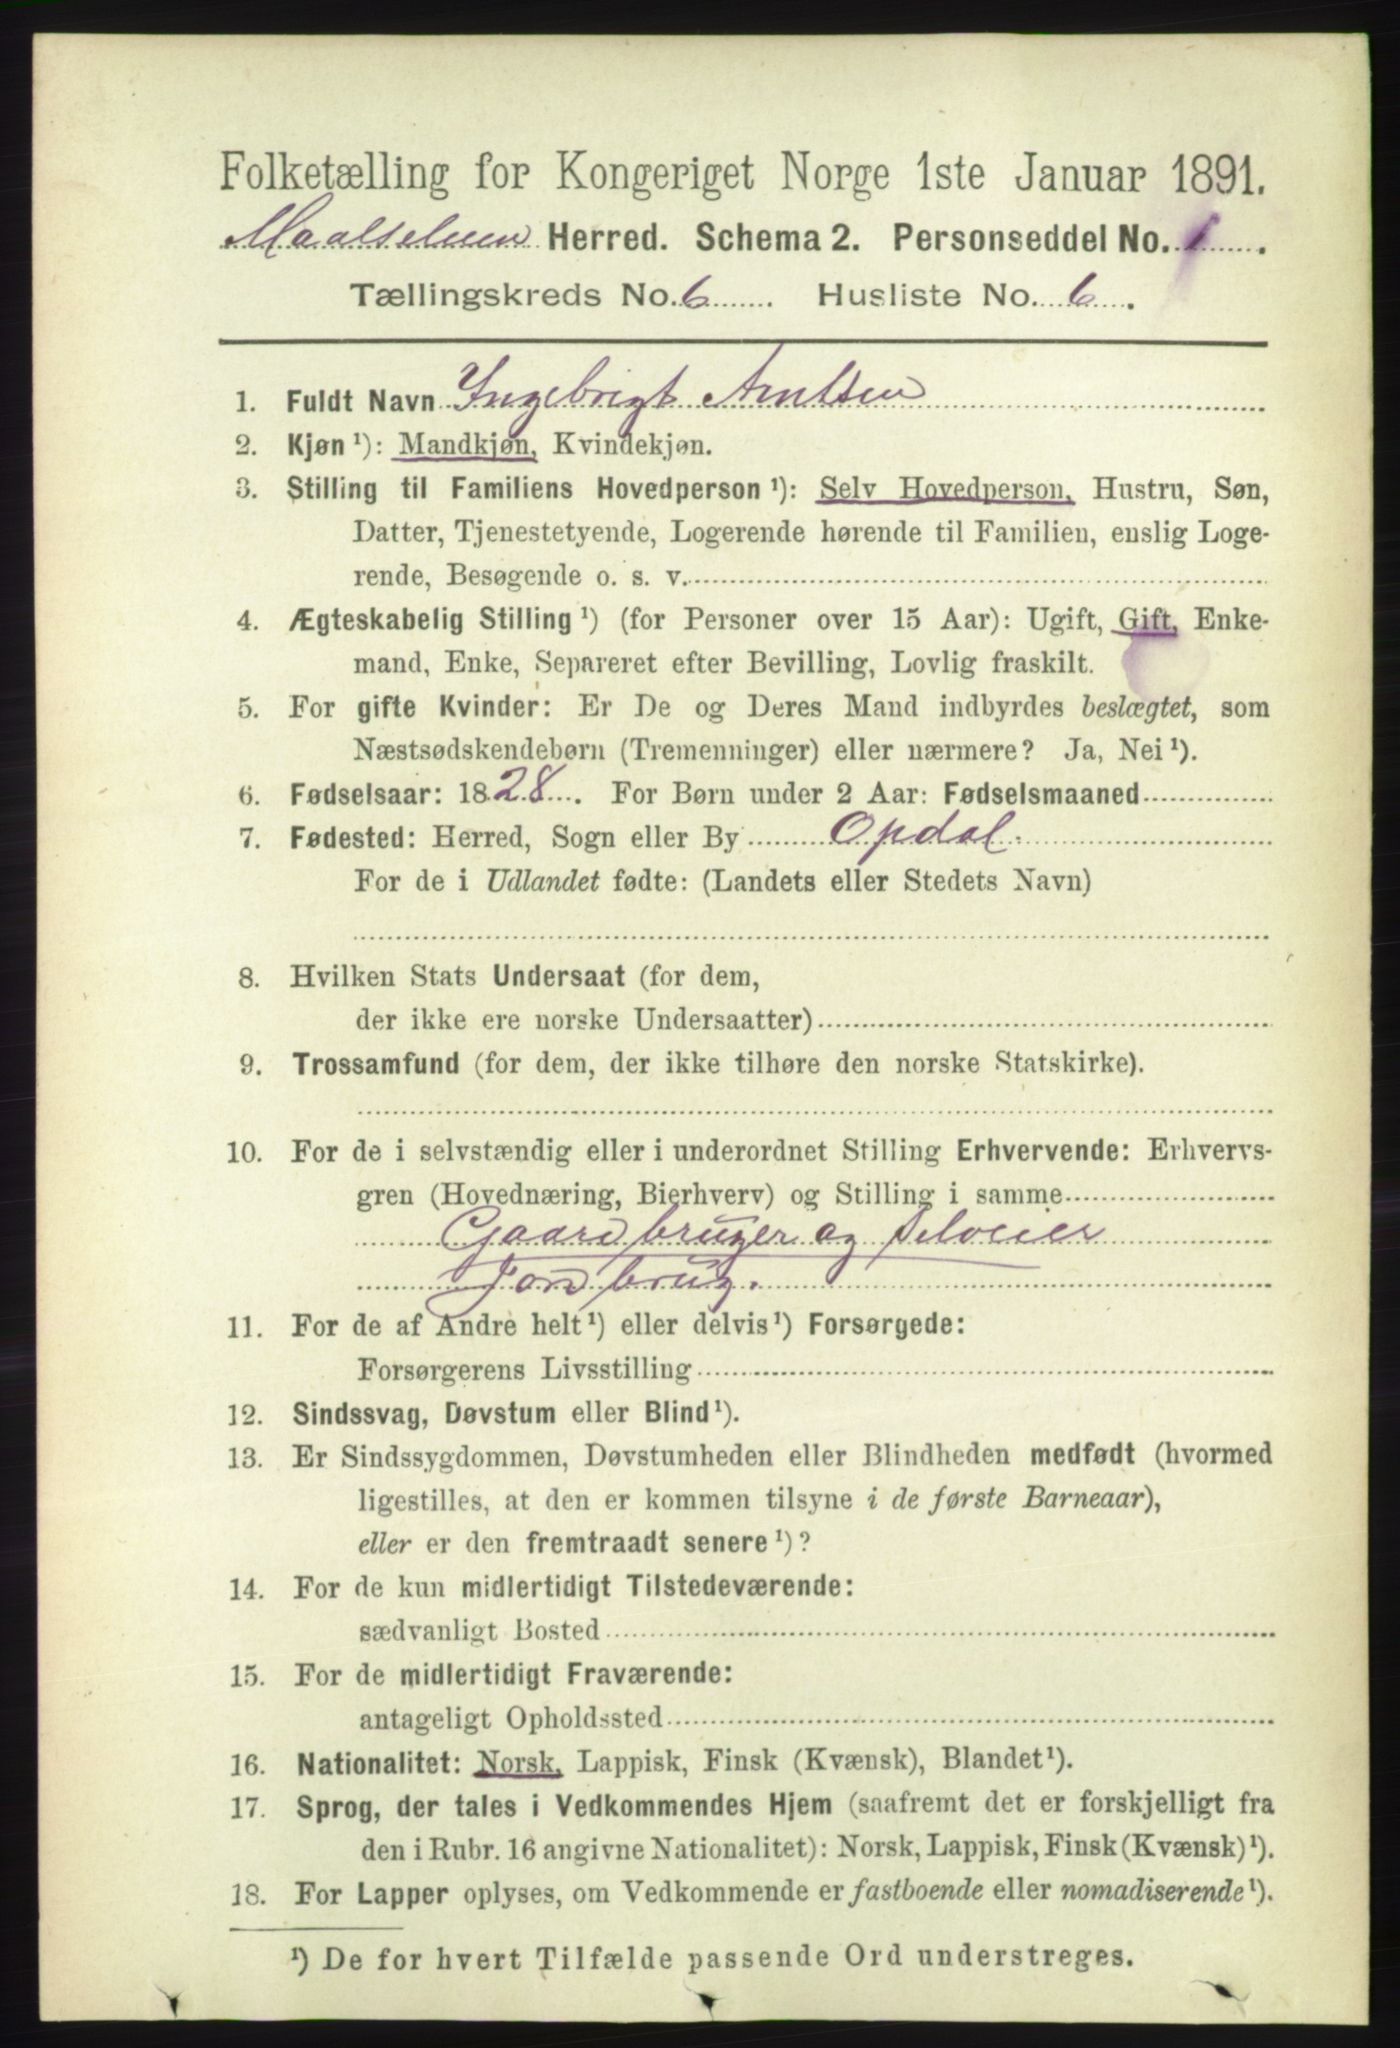 Folketælling for Kongeriget Norge 1ste Januar 1891.
Maalselven Herred. Schema 2. Personseddel No. 1.
Tællingskreds No. 6. Husliste No. 6.
1. Fuldt Navn Ingebrigt Arntsen
2. Kjøn ¹): Mandkjøn, Kvindekjøn.
3. Stilling til Familiens Hovedperson ¹): Selv Hovedperson, Hustru, Søn,
Datter, Tjenestetyende, Logerende hørende til Familien, enslig Loge-
rende, Besøgende o. s. v.
4. Ægteskabelig Stilling ¹) (for Personer over 15 Aar): Ugift, Gift, Enke-
mand, Enke, Separeret efter Bevilling, Lovlig fraskilt.
5. For gifte Kvinder: Er De og Deres Mand indbyrdes beslægtet, som
Næstsødskendebørn (Tremenninger) eller nærmere? Ja, Nei ¹).
6. Fødselsaar: 1828. For Børn under 2 Aar: Fødselsmaaned
7. Fødested: Herred, Sogn eller By Opdal.
For de i Udlandet fødte: (Landets eller Stedets Navn)
8. Hvilken Stats Undersaat (for dem,
der ikke ere norske Undersaatter)
9. Trossamfund (for dem, der ikke tilhøre den norske Statskirke).
10. For de i selvstændig eller i underordnet Stilling Erhvervende: Erhvervs-
gren (Hovednæring, Bierhverv) og Stilling i samme
Gaardbruger og Selveier
Jordbrug.
11. For de af Andre helt ¹) eller delvis ¹) Forsørgede:
Forsørgerens Livsstilling
12. Sindssvag, Døvstum eller Blind ¹).
13. Er Sindssygdommen, Døvstumheden eller Blindheden medfødt (hvormed
ligestilles, at den er kommen tilsyne i de første Barneaar),
eller er den fremtraadt senere ¹)?
14. For de kun midlertidigt Tilstedeværende:
sædvanligt Bosted
15. For de midlertidigt Fraværende:
antageligt Opholdssted
16. Nationalitet: Norsk, Lappisk, Finsk (Kvænsk), Blandet ¹).
17. Sprog, der tales i Vedkommendes Hjem (saafremt det er forskjelligt fra
den i Rubr. 16 angivne Nationalitet): Norsk, Lappisk, Finsk (Kvænsk) ¹).
18. For Lapper oplyses, om Vedkommende er fastboende eller nomadiserende ¹).
¹) De for hvert Tilfælde passende Ord understreges.